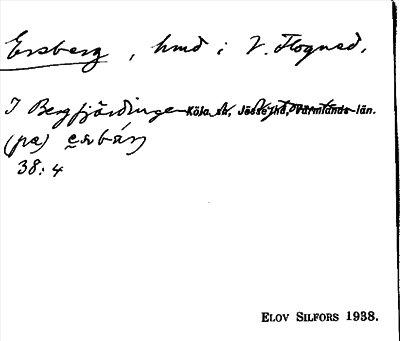 Ersberg, hmd i V. Flognad.
I Bergfjärdingen Köla sn, Jösse hd, Värmlands län.
(pa)
38:4
ELOV SILFORS 1938.